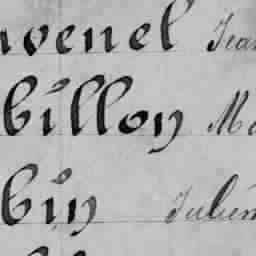 venel Jean
billon Ma
bin Julien